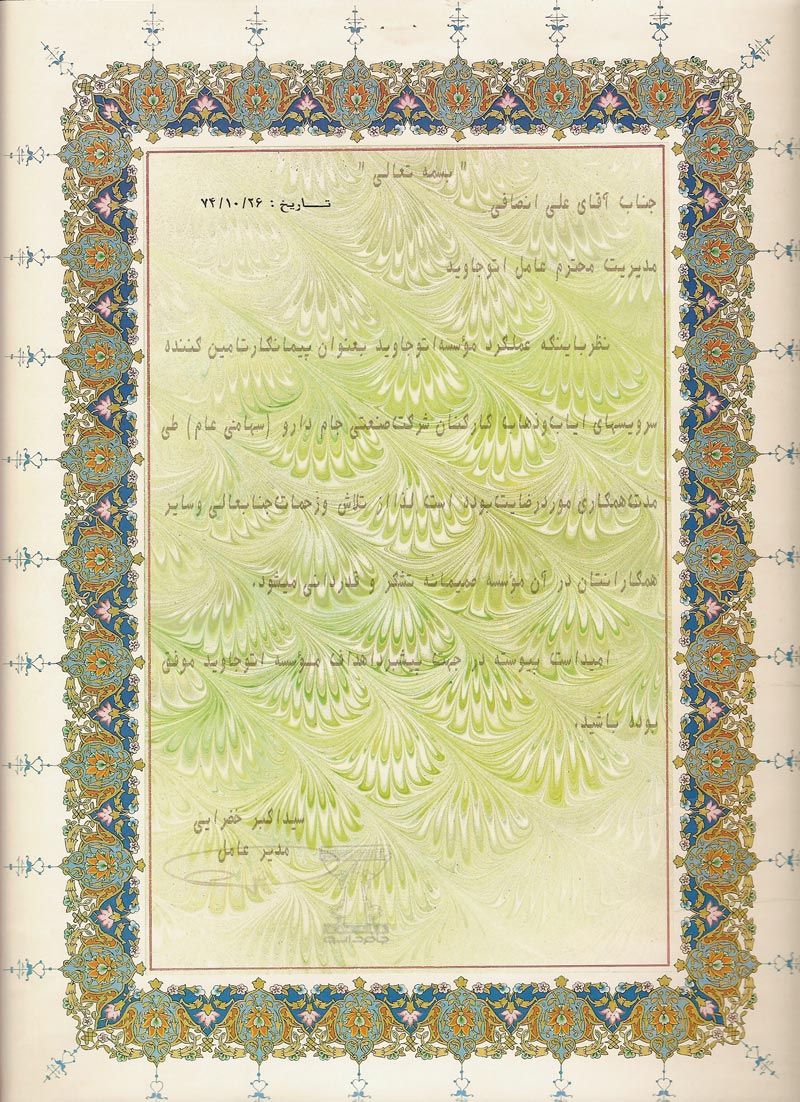 " بسمه تعالی "
جناب آقای علی انصافی
تاریخ : ۷۴/۱۰/۲۶
مدیریت محترم عامل اتوجاوید
نظر باینکه عملکرد مؤسسه اتوجاوید بعنوان پیمانکار تامین کننده
سرویسهای ایاب و ذهاب کارکنان شرکت صنعتی جام دارو (سهامی عام) طی
مدت همکاری مورد رضایت بوده است لذا از تلاش و زحمات جنابعالی و سایر
همکارانتان در آن مؤسسه صمیمانه تشکر و قدردانی میشود.
امید است پیوسته در جهت پیشبرد اهداف مؤسسه اتوجاوید موفق
بوده باشید.
سید اکبر خضرایی
مدیر عامل
جام دارو